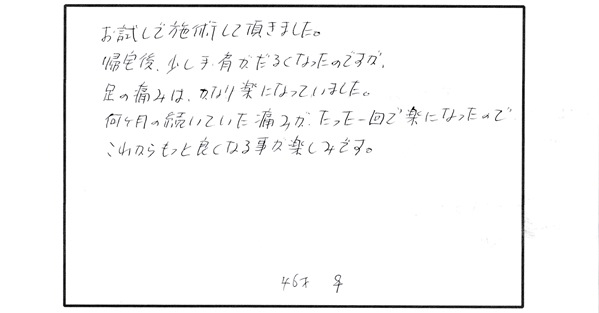 お試しで施術して頂きました。
帰宅後、少し手、肩がだるくなったのですが、
足の痛みは、かなり楽になっていました。
何ヶ月の続いていた痛みが、たった一回で楽になったので
これからもっと良くなる事が楽しみです。
46才 ♀